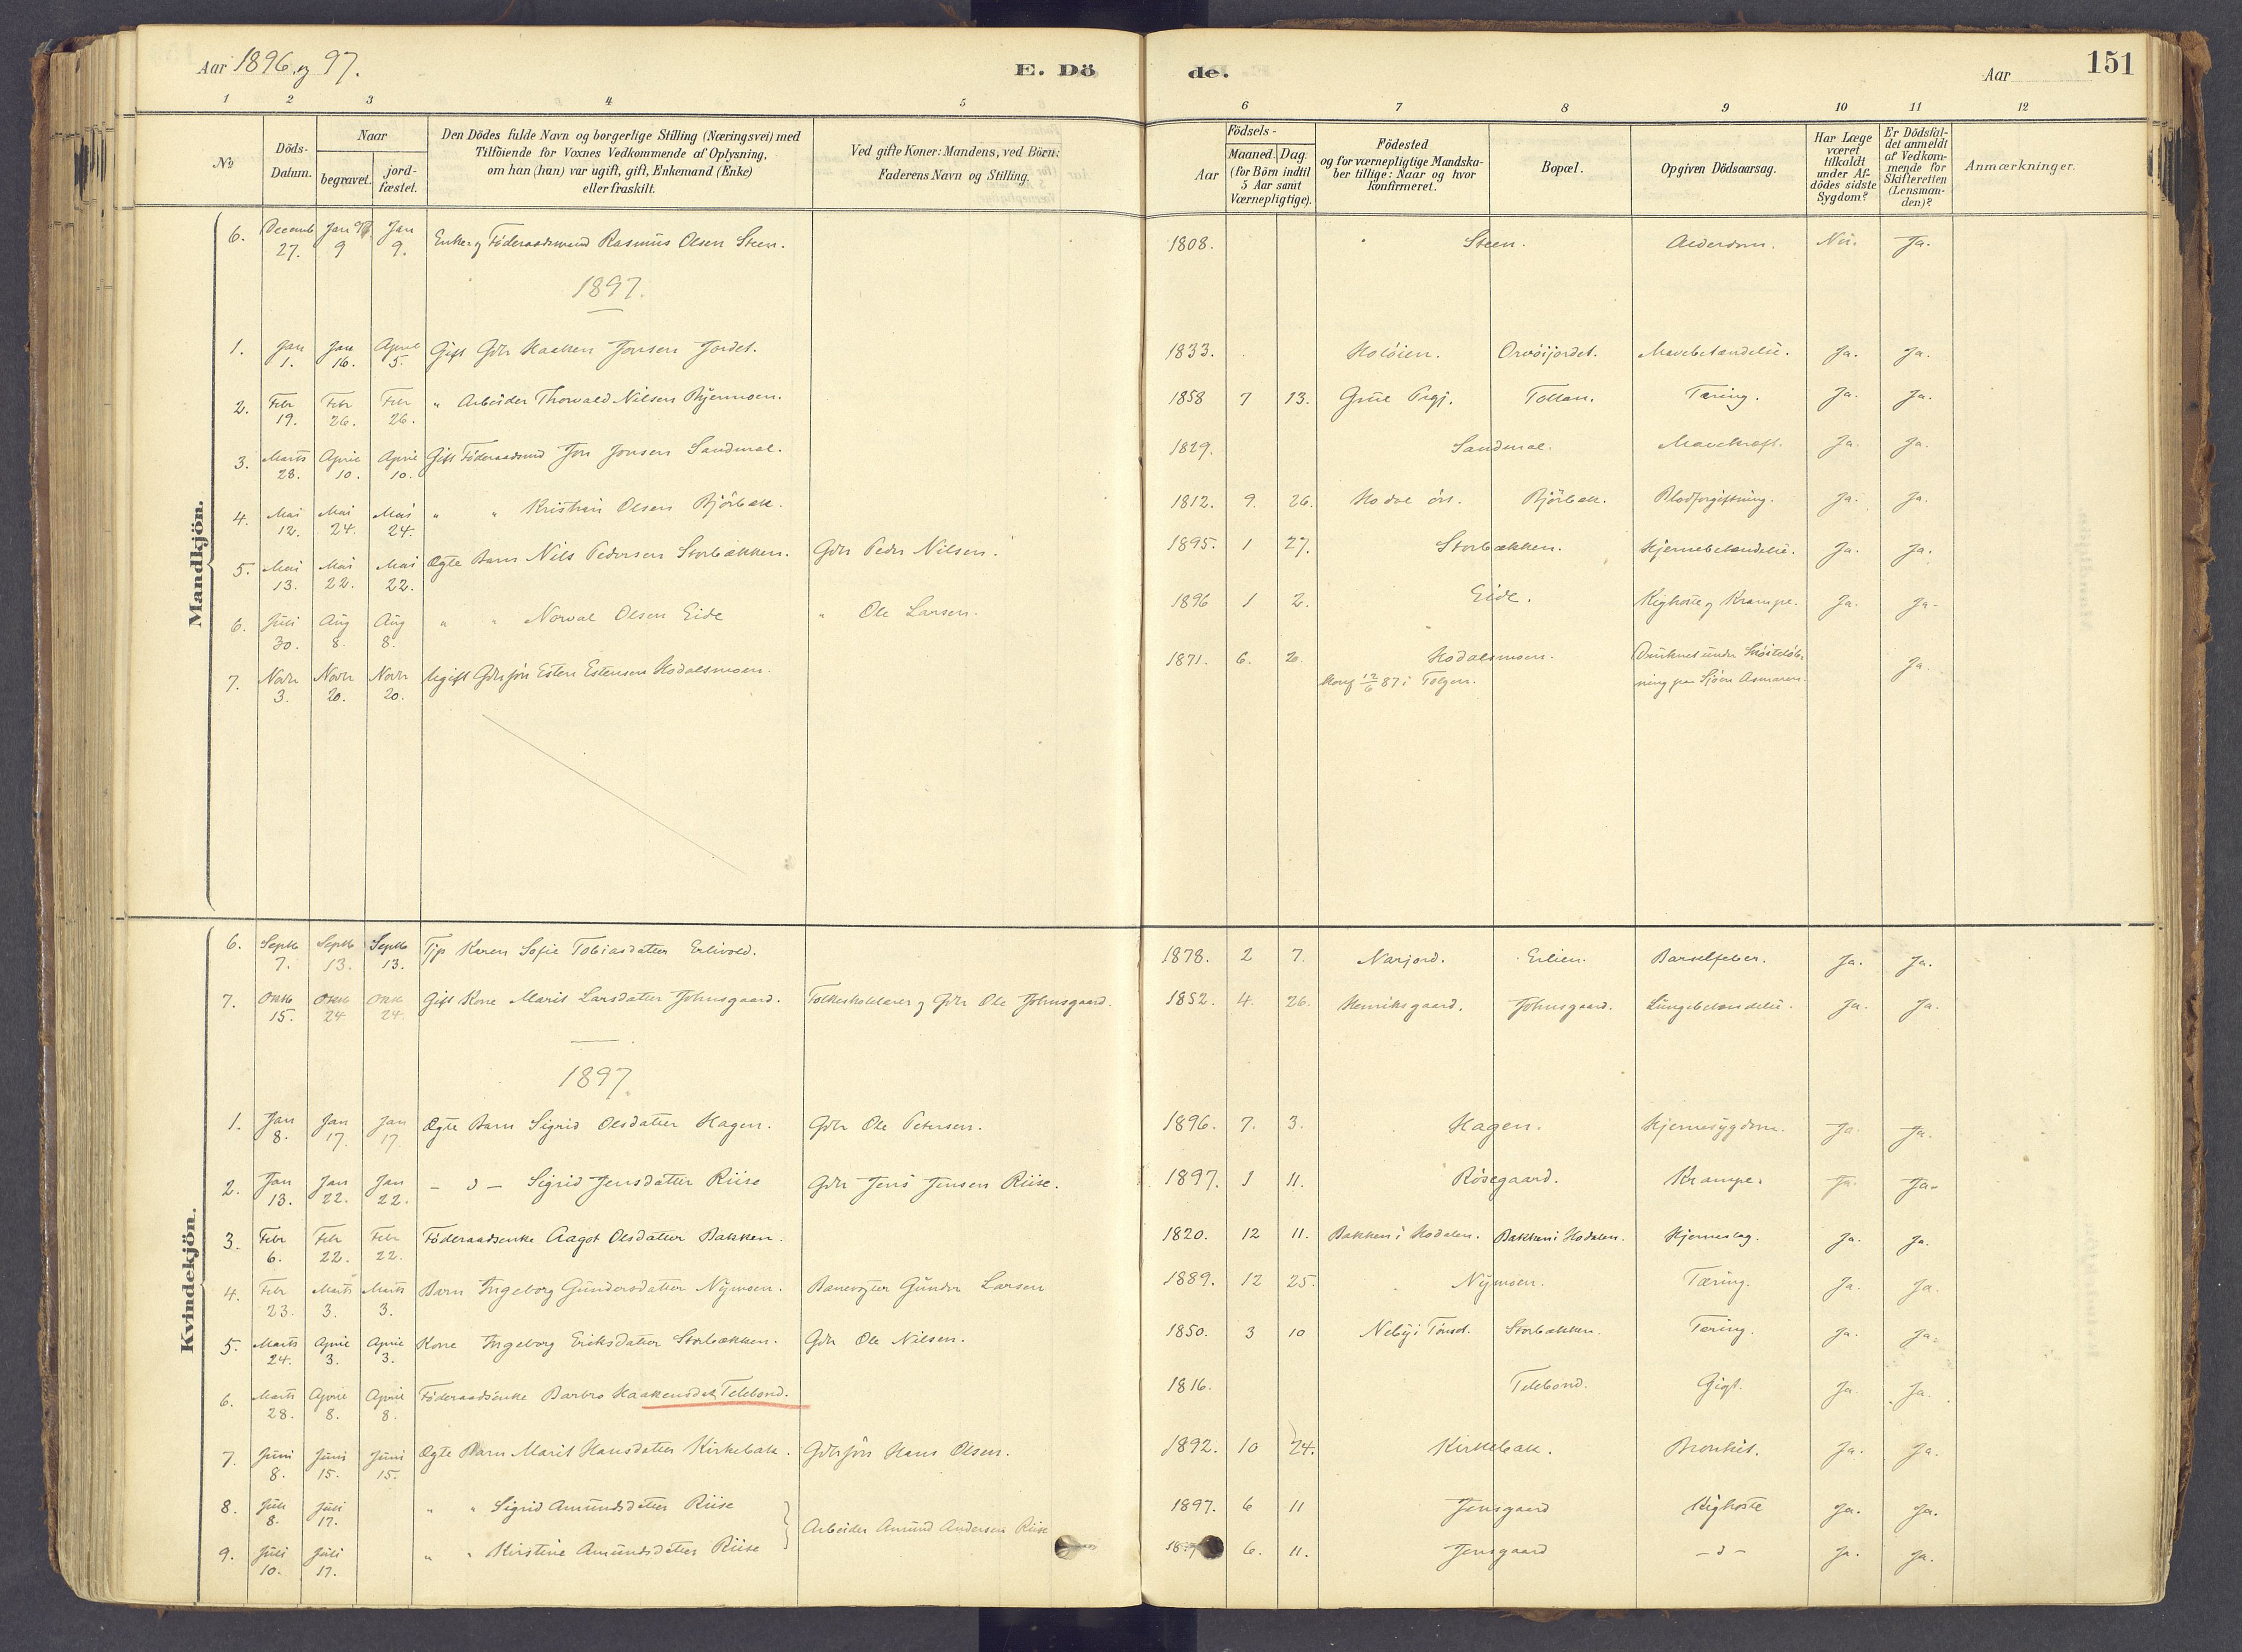 Aar 1896 og 97.
E. Dö
de.
Aar
151
1 2 3 4 5 6 7 8 9 10 11 12
No
Döds-
Datum.
Naar
begravet.
jord-
fæstet.
Den Dödes fulde Navn og borgerlige Stilling (Næringsvei) med
Tilföiende for Voxnes Vedkommende af Oplysning,
om han (hun) var ugift, gift, Enkemand (Enke)
eller fraskilt.
Ved gifte Koner: Mandens, ved Börn:
Faderens Navn og Stilling.
Födsels-
Aar
Maaned. Dag.
(for Börn indtil
5 Aar samt
Værnepligtige).
Födested
og for værnepligtige Mandska-
ber tillige: Naar og hvor
konfirmeret.
Bopæl.
Opgiven Dödsaarsag.
Har Læge
været
tilkaldt
under Af-
dödes sidste
Sygdom?
Er Dödsfal-
det anmeldt
af Vedkom-
mende for
Skifteretten
(Lensman-
den)?
Anmærkninger.
Mandkjön.
6. Decemb 27. Jan 97 9 Jan 9. Enkem Föderaadsmand Rasmus Olsen Steen. 1808. Steen. Alderdom. Nei. Ja.
1897.
1. Jan 1. Jan 16. April 5. Gift Gbr Haaken Jonsen Jordet. 1833. Holöien. Orvöijordet. Mavebetændelse. Ja. Ja.
2. Febr 19. Febr 26. Febr 26. " Arbeider Thorvald Nilsen Bjermoen. 1858 7 13. Grue Prgj. Tollan. Tæring. Ja. Ja.
3. Marts 28. April 10. April 10. Gift Föderaadsmd Jon Jonsen Sandmæl. 1829. Sandmæl. Mavekræft. Ja. Ja.
4. Mai 12. Mai 24. Mai 24. " " Kristian Olsen Björbæk. 1812. 9. 26. Hodal Björbæk. Blodforgiftning. Ja. Ja.
5. Mai 13. Mai 22. Mai 22. Ægte Barn Nils Pedersen Storbækken. Gbr Peder Nilsen. 1895. 1 27. Storbækken. Hjernebetændelse. Ja. Ja.
6. Juli 30. Aug 8. Aug 8. " " Norval Olsen Eide " Ole Larsen. 1896 1 2. Eide. Kighoste og Krampe. Ja. Ja.
7. Novbr 3. Novbr 20. Novbr 20. Ugift Gbrsön Esten Estensen Hodalsmoen. 1871. 6. 2. Hodalsmoen. Druknet under Sköiteløb- Ja.
Konf 12/6 87 i Tolgen. ning paa Sjøen
Kvindekjön.
6. Septb 7. Septb 13. Septb 13. Tjp Karen Sofie Tobiasdatter Erlivold. 1878. 2 7. Narjord. Erlien. Barselfeber. Ja. Ja.
7. Oktb 15. Oktb 24 Oktb 24. Gift Kone Marit Larsdatter Johnsgaard. Folkeskolelærer og Gbr Ole Johnsgaard. 1852. 4. 26. Henriksgaard. Johnsgaard. Lungebetændelse. Ja. Ja.
1897.
1. Jan 8. Jan 17. Jan 17 Ægte Barn Sigrid Olsdatter Hagen. Gbr Ole Petersen. 1896. 7. 3. Hagen. Hjernesygdom. Ja. Ja.
2. Jan 13. Jan 22. Jan 22. – d – Sigrid Jensdatter Riise Gbr Jens Jensen Riise. 1897. 1 11. Rösegaard. Krampe. Ja. Ja.
3. Febr 6. Febr 22. Febr 22. Föderaadsenke Aagot Olsdatter Bakken. 1820. 12 11. Bakken i Hodalen. Bakken i Hodalen. Hjerneslag. Ja. Ja.
4. Febr 23. Marts 3. Marts 3. Barn Ingeborg Gundersdatter Nymoen. Banevogter Gunder Larsen 1889. 12 25. Nymoen. Tæring. Ja. Ja.
5. Marts 24. April 3. April 3. Kone Ingeborg Eriksdatter Storbækken. Gbr Ole Nilsen. 1850. 3 10 Neby i Tönset. Storbækken. Tæring. Ja. Ja.
6. Marts 28. April 8. April 8. Föderaadsenke Barbro Haakensdat Telebond. 1816. Telebond. Gigt. Ja. Ja.
7. Juni 8. Juni 15. Juni 15. Ægte Barn Marit Hansdatter Kirkebak. Gbrsön Hans Olsen. 1892. 10 24. Kirkebak. Bronkit. Ja. Ja.
8. Juli 8. Juli 17. " " Sigrid Amundsdatter Riise 1897. 6 11 Jensgaard Kighoste Ja. Ja.
Arbeider Amund Andersen Riise
9. Juli 10. Juli 17. " " Kirstine Amundsdatter Riise 6. 11. Jensgaard – d – Ja. Ja.